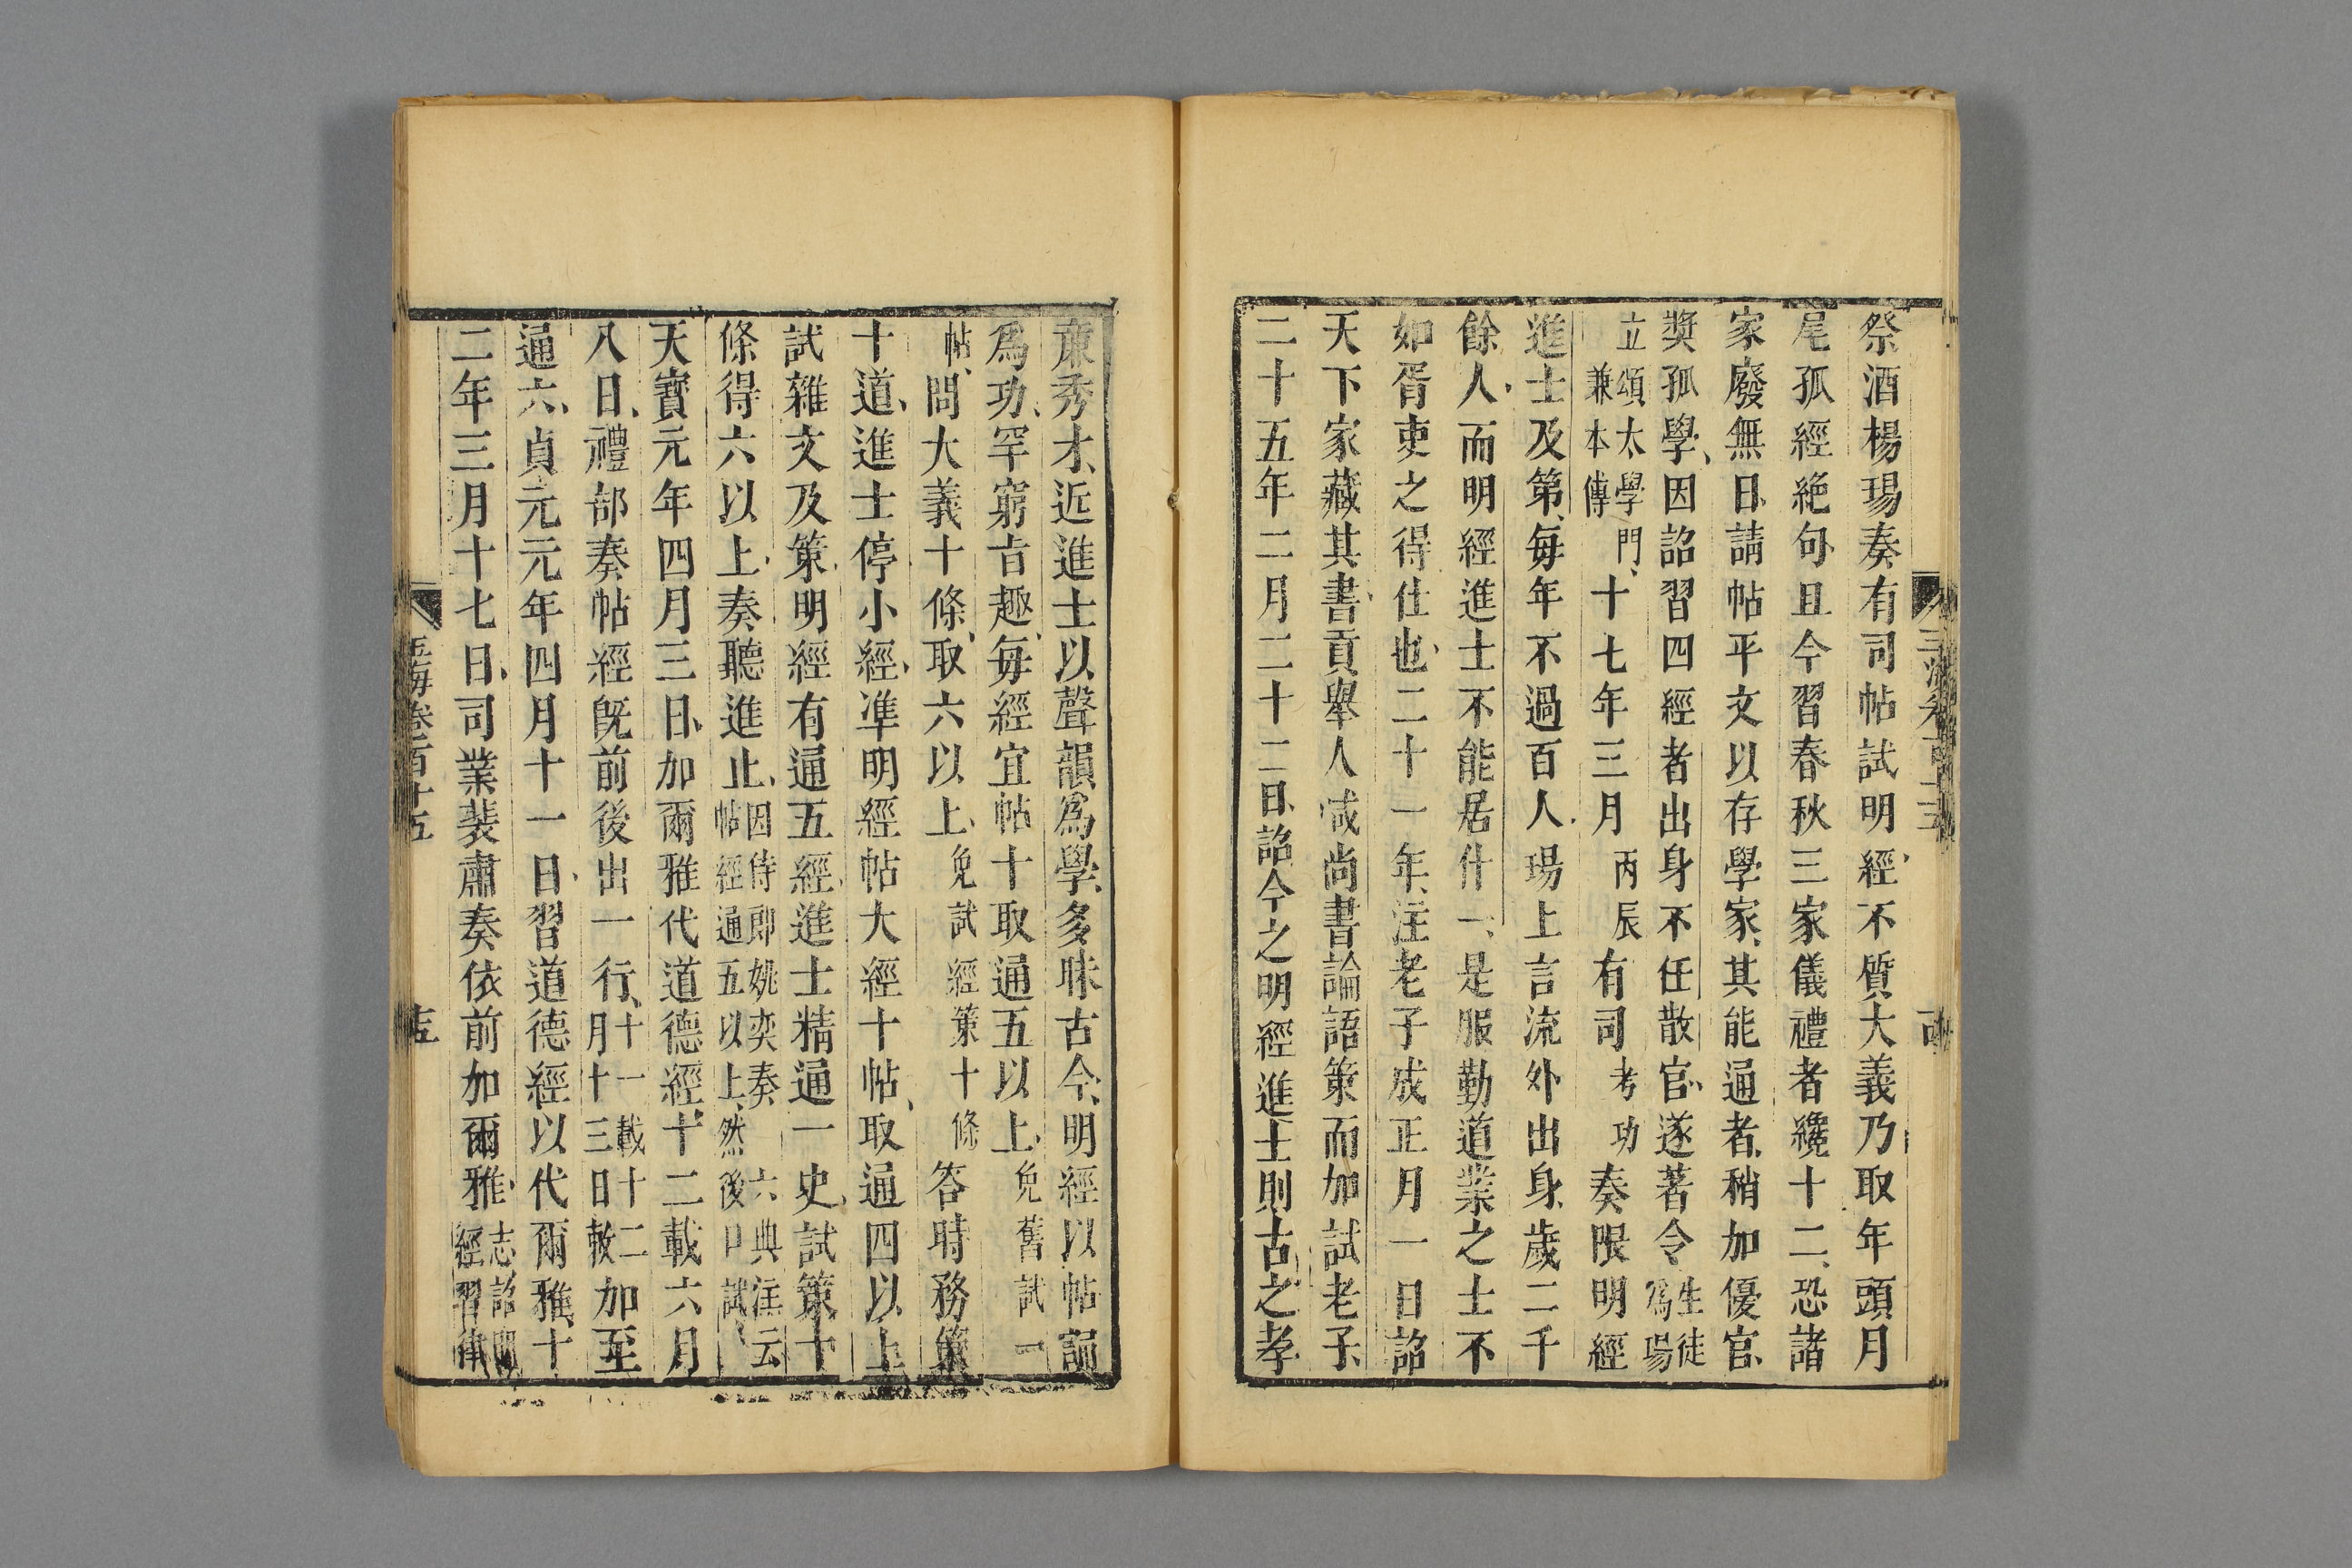 祭酒楊瑒奏有司帖試明經不質大義乃取年頭月
尾孤經絶句且今習春秋三家儀禮者纔十二恐諸
家廢無日請帖平文以存學家其能通者稍加優官
獎孤學因詔習四經者出身不任散官遂著令生徒爲瑒
立頌太學門兼本傳十七年三月丙辰有司考功奏限明經
進士及第每年不過百人瑒上言流外出身歲二千
餘人而明經進士不能居什一是服勤道業之士不
如胥吏之得仕也二十一年注老子成正月一日詔
天下家藏其書貢舉人減尚書論語策而加試老子
二十五年二月二十二日詔今之明經進士則古之孝
亷秀才近進士以聲韻爲學多昧古今明經以帖誦
爲功罕窮旨趣每經宜帖十取通五以上免舊試一
帖問大義十條取六以上免試經策十條答時務策
十道進士停小經準明經帖大經十帖取通四以上
試雜文及策明經有通五經進士精通一史試策十
條得六以上奏聽進止因侍郎姚奕奏六典注云帖經通五以上然後口試
天寶元年四月三日加爾雅代道德經十二載六月
八日禮部奏帖經旣前後出一行十一載十二月十三日敕加至
通六貞元元年四月十一日習道德經以代爾雅十
二年三月十七日司業裴肅奏依前加爾雅志詔明經習律
玉海卷百十五